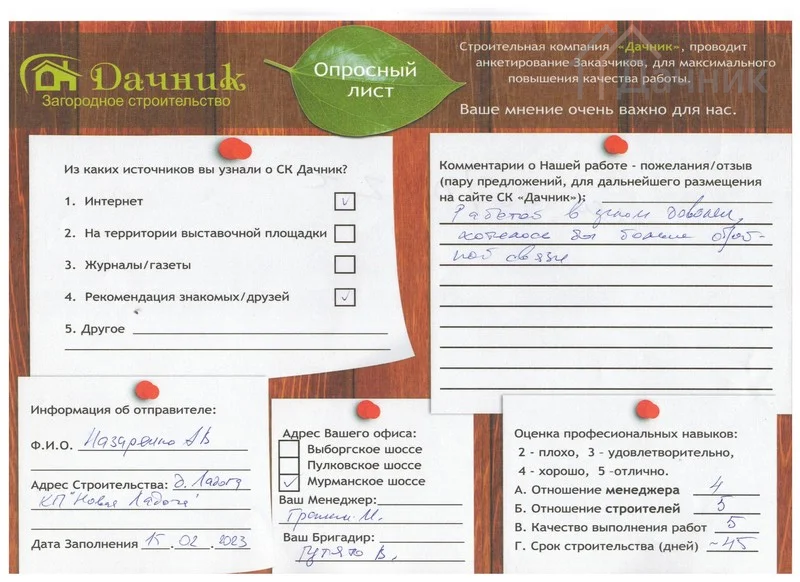 Дачник
Загородное строительство
Опросный
лист
Строительная компания «Дачник», проводит
анкетирование Заказчиков, для максимального
повышения качества работы.
Ваше мнение очень важно для нас.
Дачник
Из каких источников вы узнали о СК Дачник?
1. Интернет V
2. На территории выставочной площадки
3. Журналы/газеты
4. Рекомендация знакомых/друзей V
5. Другое
Комментарии о Нашей работе - пожелания/отзыв
(пару предложений, для дальнейшего размещения
на сайте СК «Дачник»):
Работой в целом доволен,
хотелось бы больше обрат-
ной связи
Информация об отправителе:
Ф.И.О. Назаренко АВ
Адрес Строительства: д. Ладога
КП "Новая Ладога"
Дата Заполнения 15.02.2023
Адрес Вашего офиса:
Выборгское шоссе
Пулковское шоссе
V Мурманское шоссе
Ваш Менеджер:
М.
Ваш Бригадир:
В.
Оценка профессиональных навыков:
2 - плохо, 3 - удовлетворительно,
4 - хорошо, 5 -отлично.
А. Отношение менеджера 4
Б. Отношение строителей 5
В. Качество выполнения работ 5
Г. Срок строительства (дней) ~45